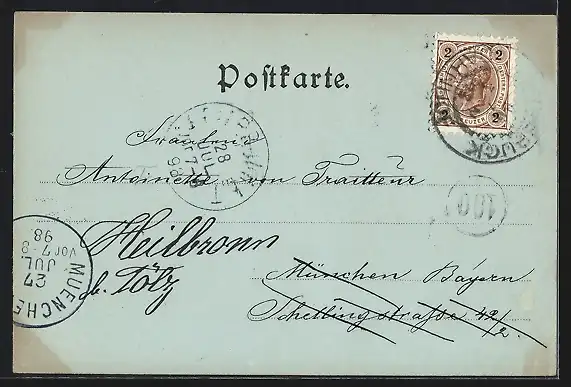 Postkarte.
2 2
KREUZER
2 2
BRUCK
28
JUL
98
Fräulein
Antoinette von Traitteur
100
Heilbronn
b. Tölz
München Bayern
Schellingstraße 42/2.
MUENCHEN
27
JUL
Vor 7-8
98